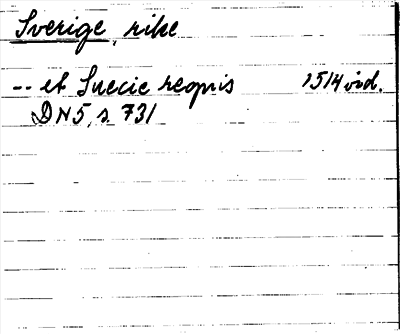 Sverige, rike
-- et Suecie regnis 1514 vid.
DN 5, s. 731